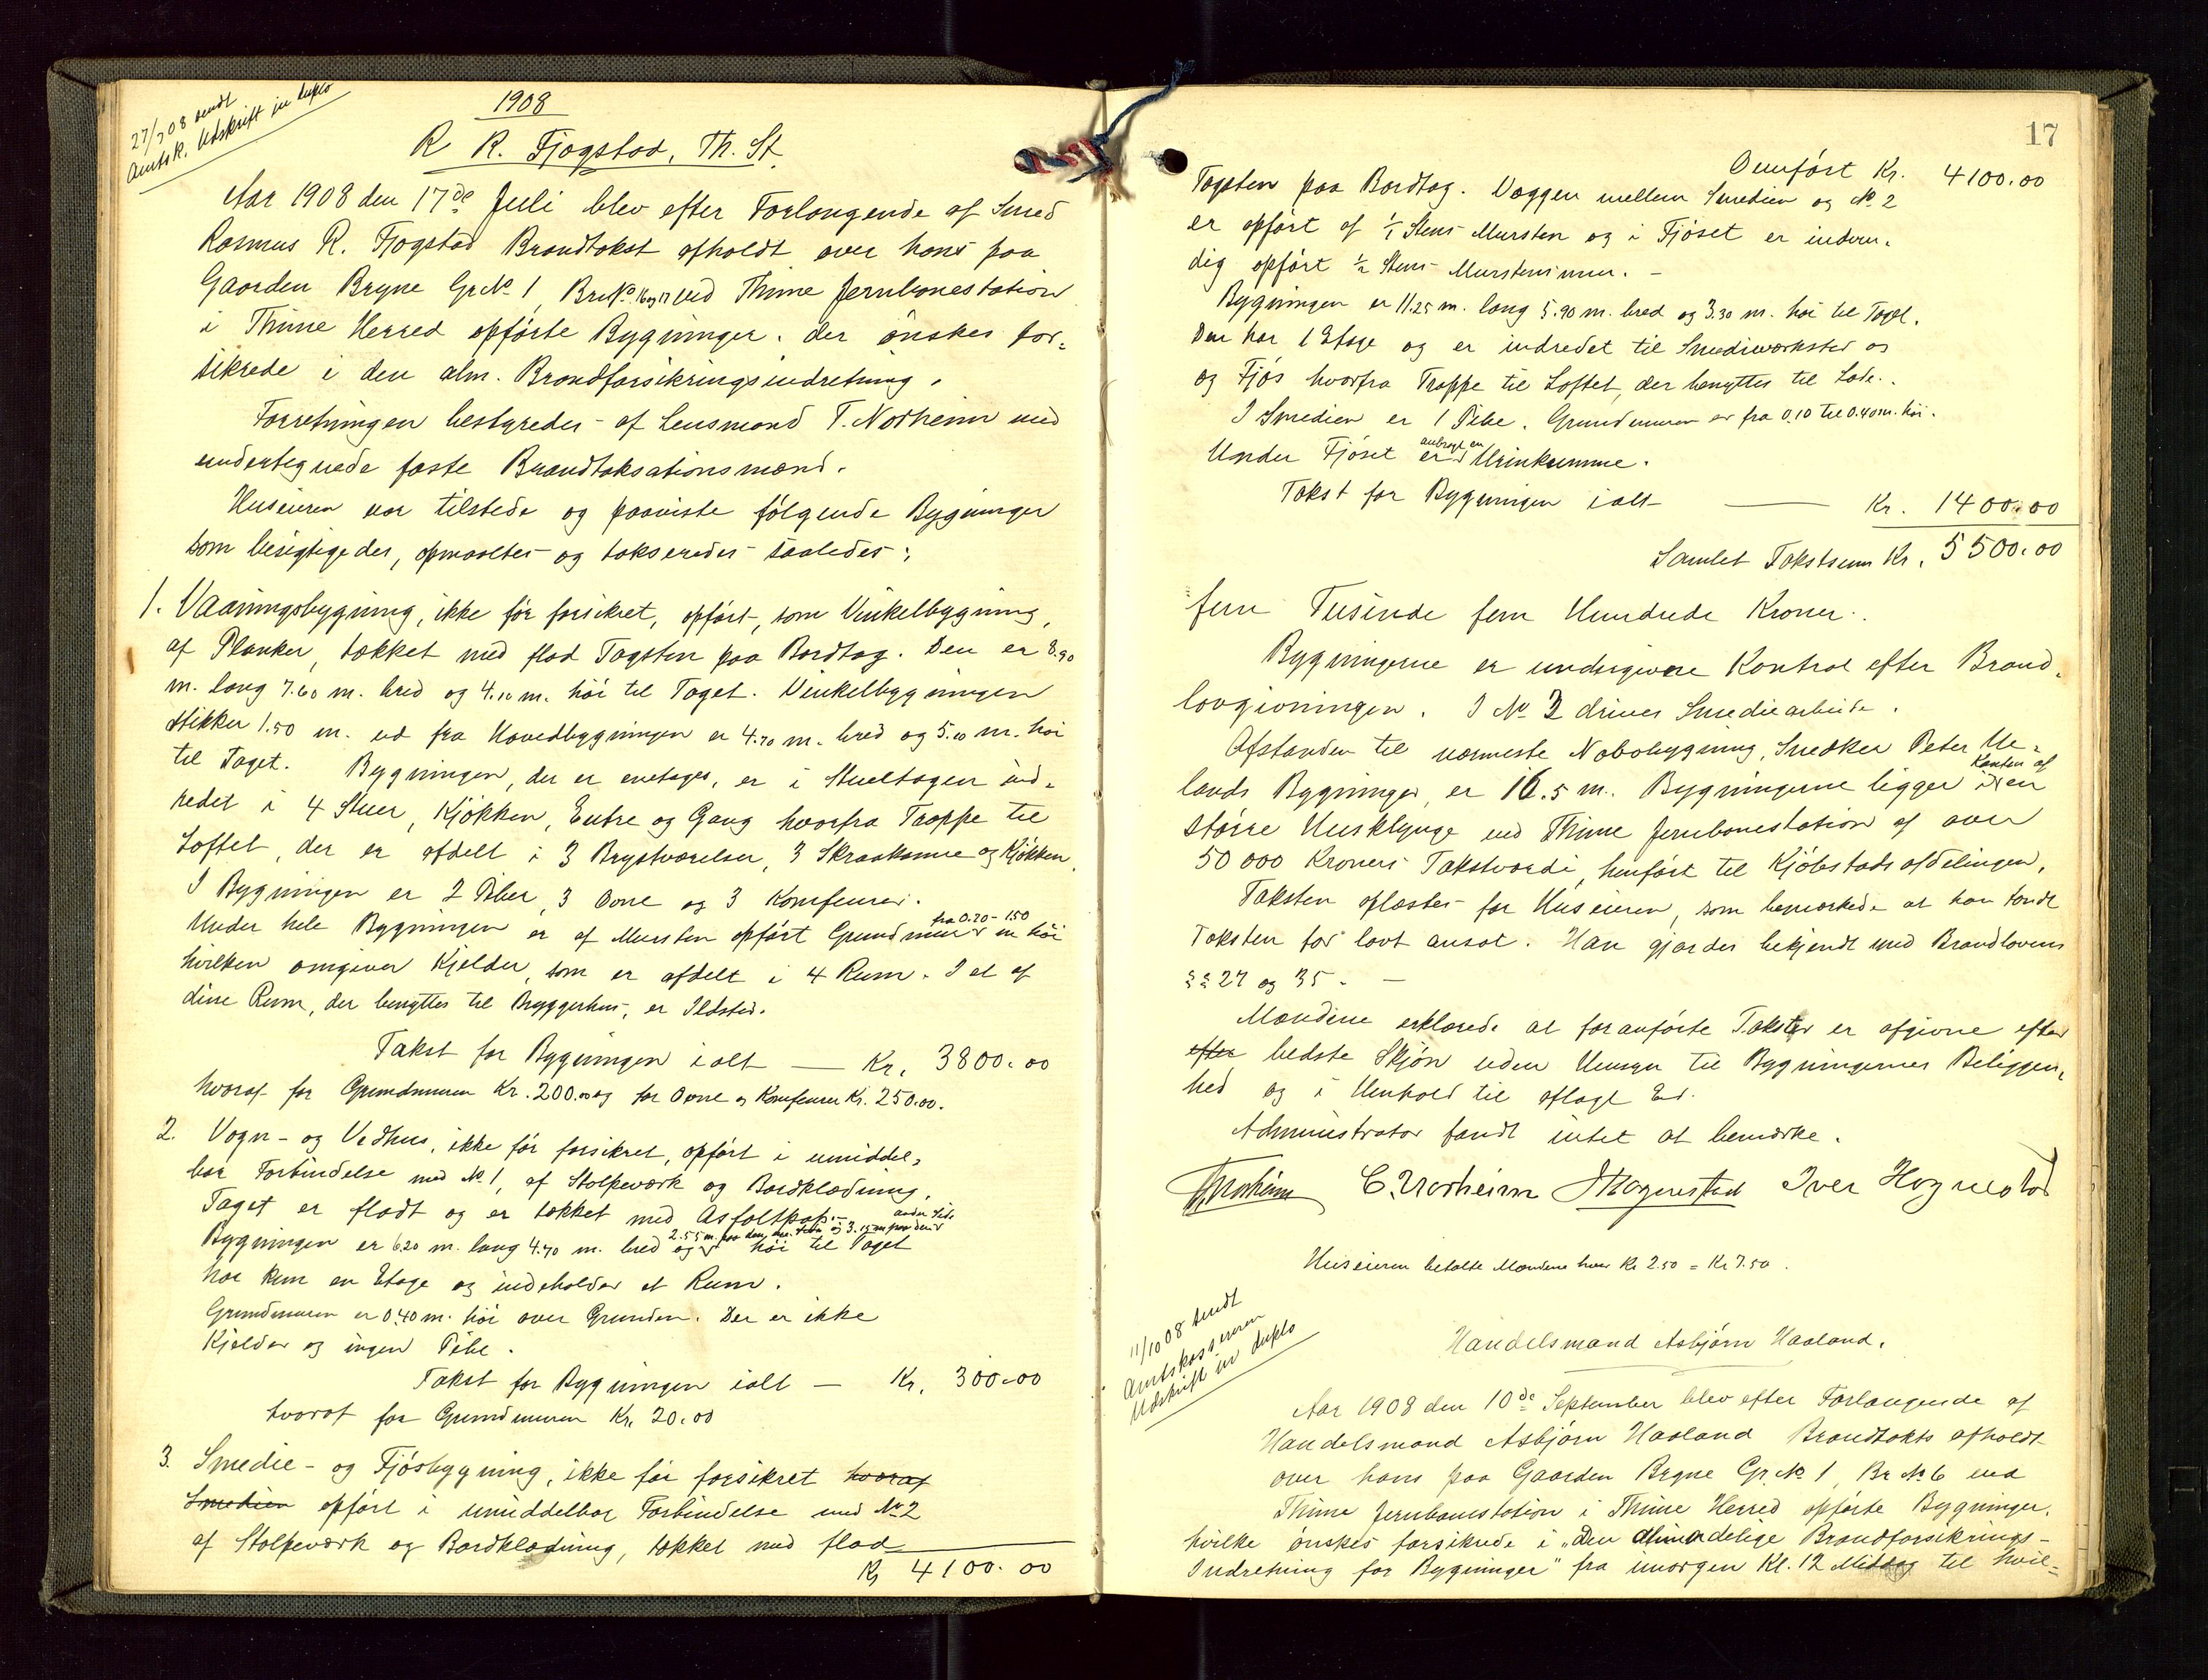 27/7 08 sendt
Amtsk. Udskrift in duplo
1908
R R. Fjogstad, Th. St.
Aar 1908 den 17de Juli blev efter Forlangende af Smed
Rasmus R. Fjogstad Brandtakst afholdt over hans paa
Gaarden Bryne Gr.No. 1 Br.No. 16 og 17 ved Thime Jernbanestation
i Thime Herred opførte Bygninger. der ønskes for-
sikrede i den alm. Brandforsikringsindretning.
Forretningen bestyredes af Lensmand T. Norheim med
undertegnede faste Brandtaksationsmænd.
Huseieren var tilstede og paaviste følgende Bygninger
som besigtigedes, opmaaltes og takseredes saaledes:
1. Vaaningsbygning, ikke før forsikret, opført, som Vinkelbygning,
af Planker, tækket med flad Tagsten paa Bordtag. Den er 8.90
m. lang 7.60 m. bred og 4.10 m. høi til Taget. Vinkelbygningen
stikker 1.50 m. ud fra Hovedbygningen er 4.70 m. bred og 5.10 m. høi
til Taget. Bygningen, der er enetages, er i Stueetagen ind-
redet i 4 Stuer, Kjøkken, Entre og Gang hvorfra Trappe til
Loftet, der er afdelt i 3 Brystværelser, 3 Skraakamre og Kjøkken.
I Bygningen er 2 Piber, 3 Ovne og 3 Komfeurer.
Under hele Bygningen er af Mursten opført Grundmur fra 0.20 - 1.50 m høi
hvilken omgiver Kjelder, som er afdelt i 4 Rum. I et af
disse Rum, der benyttes til Bryggerhus, er Ildsted.
Takst for Bygningen ialt — Kr. 3800.00
hvoraf for Grundmuren Kr. 200.00 og for Ovne og Komfeurer Kr. 250.00.
2. Vogn- og Vedhus, ikke før forsikret, opført i umiddel-
bar Forbindelse med No. 1, af Stolpeværk og Bordklædning.
Taget er fladt og er tækket med Asfaltpap.-
Bygningen er 6.20 m. lang 4.70 m. bred og 2.55 m. paa den ene Side og 3.15 m paa den anden Side høi til Taget
har kun en Etage og indeholder et Rum.
Grundmuren er 0.40 m. høi over Grunden. Der er ikke
Kjelder og ingen Pibe.
Takst for Bygningen ialt — Kr. 300.00
hvoraf for Grundmuren Kr. 20.00
3. Smedie- og Fjøsbygning, ikke før forsikret hvoraf
Smedien opført i umiddelbar Forbindelse med No 2
af Stolpeværk og Bordklædning, tækket med flad
Kr 4100.00
17
Overført Kr. 4100.00
Tagsten paa Bordtag. Væggen mellem Smedien og No. 2
er opført af 1/1 Stens Mursten og i Fjøset er indven-
dig opført 1/2 Stens Murstensmur. -
Bygningen er 11.25 m. lang 5.90 m. bred og 3.30 m. høi til Taget.
Den har 1 Etage og er indredet til Smedieværksted og
og Fjøs hvorfra Trappe til Loftet, der benyttes til Lade.
I Smedien er 1 Pibe. Grundmuren er fra 0.10 til 0.40 m. høi.
Under Fjøset er anbragt en Urinkumme.
Takst for Bygningen ialt — Kr. 1400.00
Samlet Takstsum Kr. 5500.00
fem Tusinde fem Hundrede Kroner.
Bygningerne er undergivne Kontrol efter Brand-
lovgivningen. I No 3 drives Smediearbeide.
Afstanden til nærmeste Nabobygning, Snedker Peter Ue-
lands Bygninger, er 16.5 m. Bygningerne ligger i Kanten af en
større Husklynge ved Thime Jernbanestation af over
50 000 Kroners Takstværdi, henført til Kjøbstadsafdelingen.
Taksten oplæstes for Huseieren, som bemærkede at han fandt
Taksten for lavt ansat. Han gjordes bekjendt med Brandlovens
§§ 27 og 35. -
Mændene erklærede at foranførte Takster er afgivne efter
efter bedste Skjøn uden Hensyn til Bygningernes Beliggen-
hed og i Henhold til aflagt Ed.
Administrator fandt intet at bemærke.
T. Norheim C. Norheim Iver Hognestad
Huseieren betalte Mændene hver Kr 2.50 = Kr 7.50.
11/10 08 sendt
Amtskassereren
Udskrift in duplo
Handelsmand Asbjørn Haaland.
Aar 1908 den 10de September blev efter Forlangende af
Handelsmand Asbjørn Haaland Brandtakts afholdt
over hans paa Gaarden Bryne Gr. No. 1 Br No. 6 ved
Thime Jernbanestation i Thime Herred opførte Bygninger.
hvilke ønskes forsikrede i „Den almindelige Brandforsikrings-
Indretning for Bygninger" fra imorgen Kl. 12 Middag til hvil-